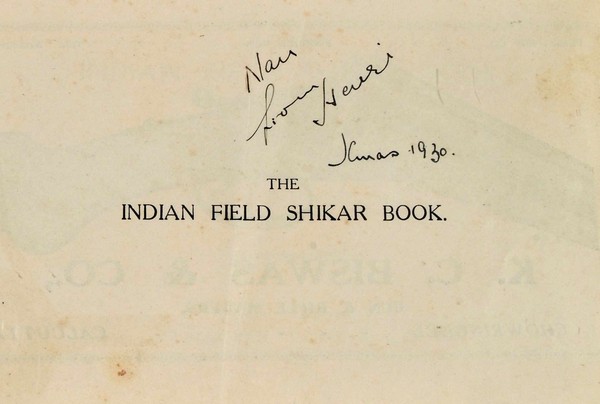 Nan
from Henri
Xmas 1930.
THE
INDIAN FIELD SHIKAR BOOK.
K. C. BISWAS & CO.,